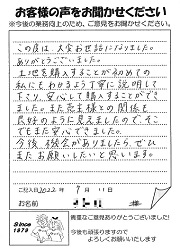 お客様の声をお聞かせください
※今後の業務向上のため、ご意見をお聞かせください。
この度は、大変お世話になりました。
ありがとうございました。
土地を購入することが初めての
私にもわかるよう丁寧に説明して
下さり、安心して購入することができ
ました。また売主様との関係も
良好のように見えましたので、そこ
でもまた安心できました。
今後、機会がありましたら、ぜひ
またお願いしたいと思います。
ご記入日 2022年 9月 11日
お名前
Since
1979
貴重なご意見ありがとうございます!
今後も頑張りますので
よろしくお願いいたします